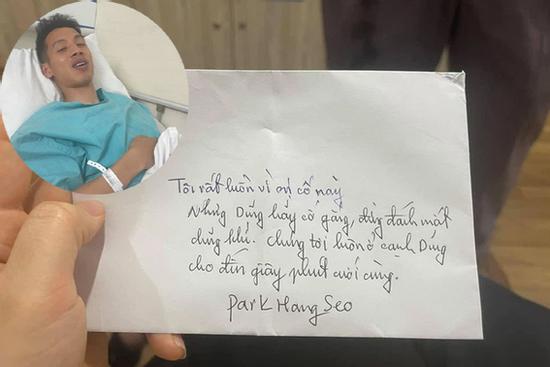 Tôi rất buồn vì sự cố này
Nhưng Dũng hãy cố gắng, đừng đánh mất
dũng khí. Chúng tôi luôn ở cạnh Dũng
cho đến giây phút cuối cùng.
Park Hang Seo